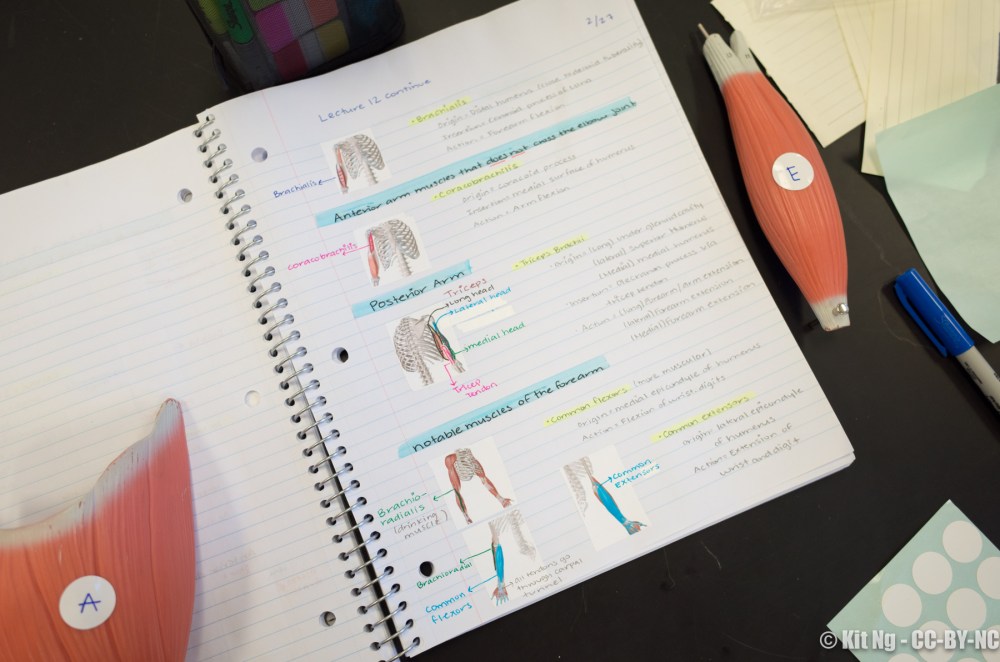 2/23
Lecture 12 continue
• Brachialis
Insertion: coronoid process of ulna
Action = Forearm flexion
Brachialis
Anterior arm muscles that does not cross the elbow joint
• Coracobrachilis
Origin: coracoid process
Insertion: medial surface of humerus
Action = Arm flexion
coracobracjilis
Posterior Arm
• Triceps Brachial
Origin = (Long)
(lateral) superior Humerus
(Medial) medial humerus
Insertion = Olecranon process via
tricep tendon
Action = (long) forearm/arm extension
(lateral) forearm extension
(Medial) forearm extension
Triceps
Long head
Lateral head
medial head
Tricep
tendon
notable muscles of the forearm
• Common flexors (more muscular)
Origin = medial epicondyle of humerus
Action = Flexion of wrist, digits
• Common extensors
Origin: lateral epicondyle
of humerus
Action = Extension of
wrist and digit
Brachio-
radialis
(drinking
muscle)
common
extensors
Brachioradial
common
flexors
all tendons go
through carpal
tunnel
A
E
© Kit Ng - CC-BY-NC